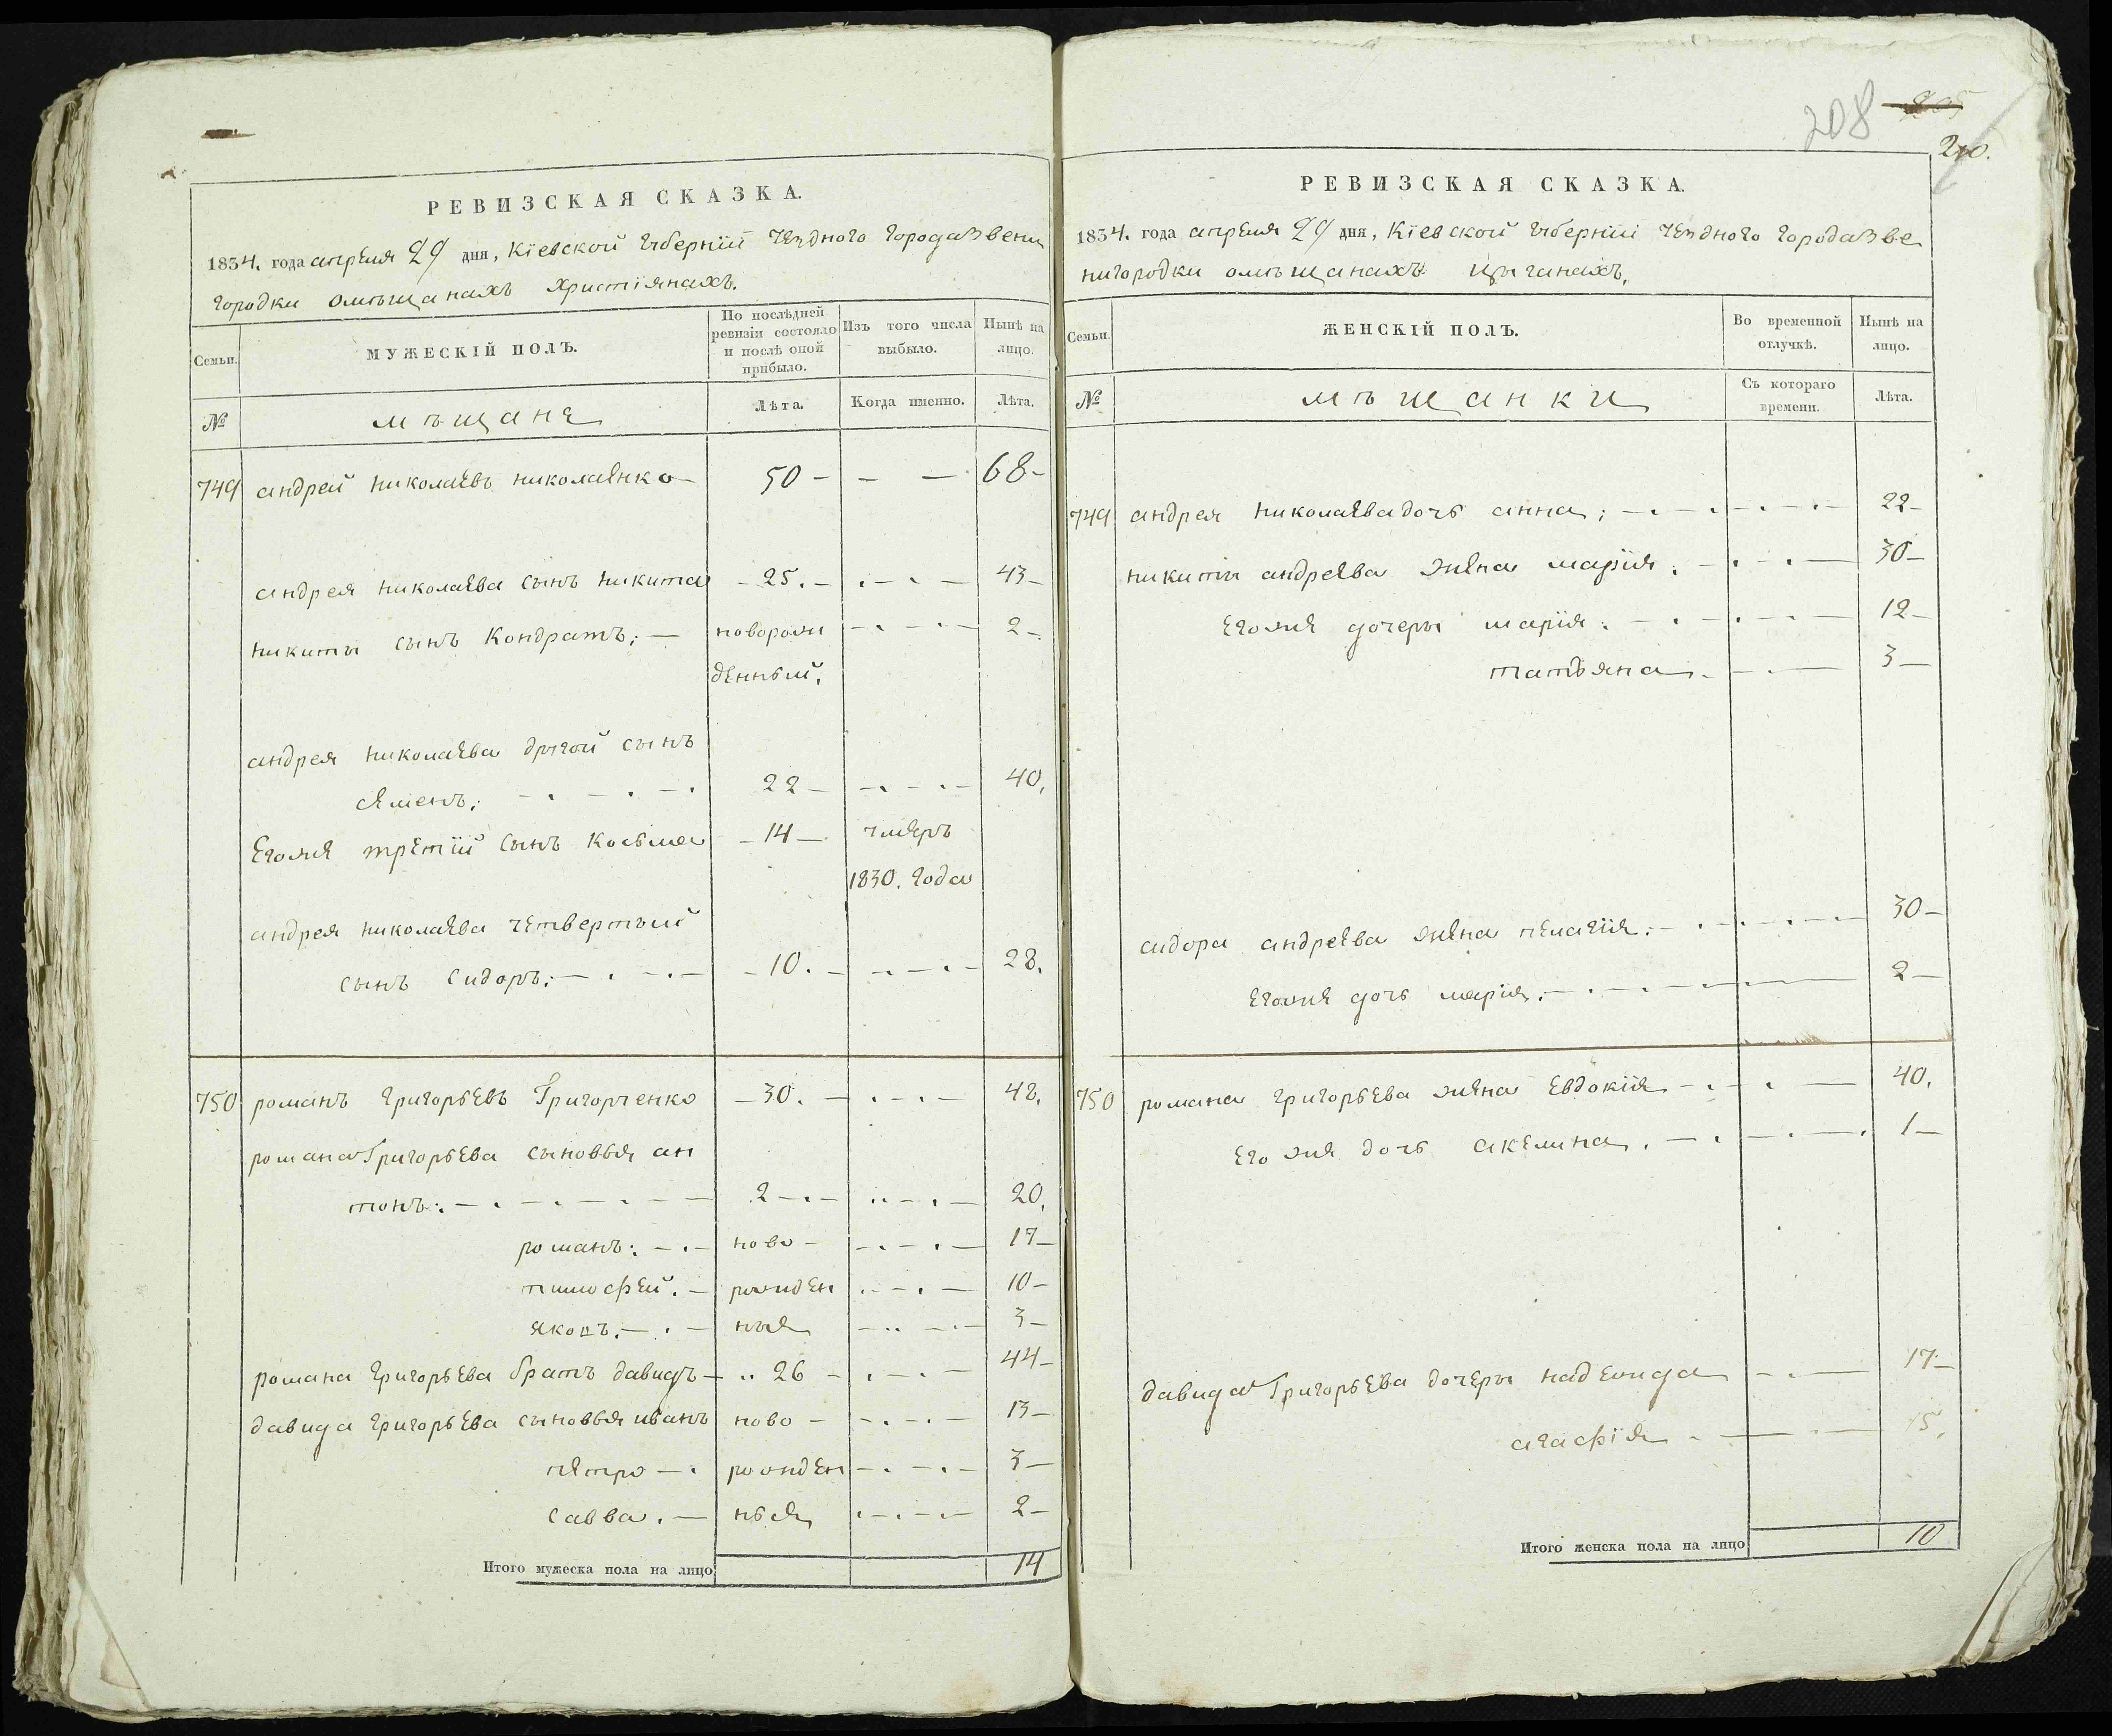 РЕВИЗСКАЯ СКАЗКА.
1834. года апреля 29 дня, Кіевской губерніи уезднаго города Звени
городки омѣщанахъ христіянахъ.
Семьи.
МУЖЕСКІЙ ПОЛЪ.
По послѣдней ревизіи состояло и послѣ оной прибыло.
Изъ того числа выбыло.
Нынѣ на лицо.
№
мѣщане
Лѣта.
Когда именно.
Лѣта.
749 андрей николаевъ николаенко 50 — — — 68 —
андрея николаева сынъ никита — 25. — 43 —
никиты сынъ Кондратъ; — новорож 2 —
денный.
андрея николаева другой сынъ
семенъ; 22 — 40.
Егоже третій сынъ Косьма — 14 — умеръ
1830. года
андрея николаева четвертый
сынъ Сидоръ; — 10. — 28.
750 романъ григорьевъ Григорченко — 30. — 48.
романа Григорьева сыновья ан
тонъ: 2 — 20.
романъ: ново — 17 —
тимофей. — рожден 10 —
яковъ. ныя 3 —
романа григорьева братъ давидъ — 26 — 44 —
давида григорьева сыновья иванъ ново — 13 —
петро — рожден 3 —
савва. — ныя 2 —
Итого мужеска пола на лицо 14
208
210.
РЕВИЗСКАЯ СКАЗКА.
1834. года апреля 29 дня, Кіевской губерніи уезднаго города Зве
нигородки омѣщанахъ цыганахъ.
Семьи.
ЖЕНСКІЙ ПОЛЪ.
Во временной отлучкѣ.
Нынѣ на лицо.
№
мѣщанки
Съ котораго времени.
Лѣта.
749 андрея николаева дочь анна; 22 —
никиты андреева жена марія. 30 —
Егоже дочеры марія. 12 —
татьяна. 3 —
сидора андреева жена пелагія. 30 —
Егоже дочь марія. 2 —
750 романа григорьева жена Евдокія 40.
Его же дочь акелина. 1 —
давида Григорьева дочеры надежда 17 —
агафія 15.
Итого женска пола на лицо 10